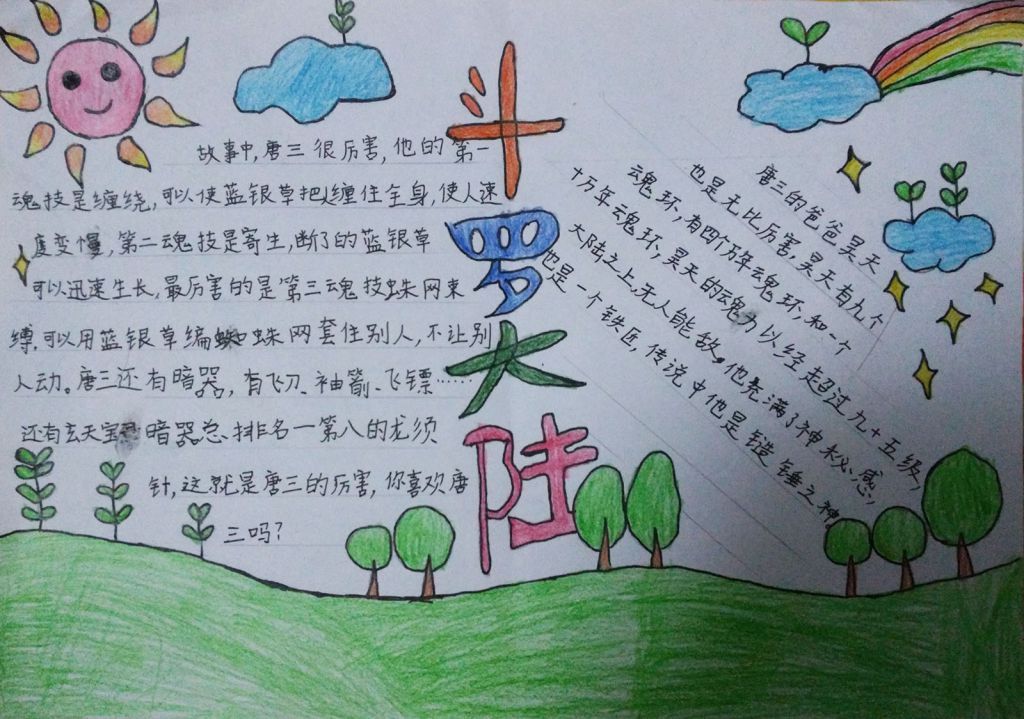 斗罗大陆
故事中,唐三很厉害,他的第一
魂技是缠绕,可以使蓝银草把人缠住全身,使人速
度变慢,第二魂技是寄生,断了的蓝银草
可以迅速生长,最厉害的是第三魂技蛛网束
缚,可以用蓝银草编蜘蛛网套住别人,不让别
人动。唐三还有暗器,有飞刀、袖箭、飞镖……
还有玄天宝 暗器总排名一第八的龙须
针,这就是唐三的厉害,你喜欢唐
三吗?
唐三的爸爸昊天
也是无比厉害,昊天有九个
魂环,有四个万年魂环,和一个
十万年魂环、昊天的魂力以经超过九十五级,
大陆之上,无人能敌。他充满了神秘感,
他是一个铁匠,传说中他是锻造锤之神